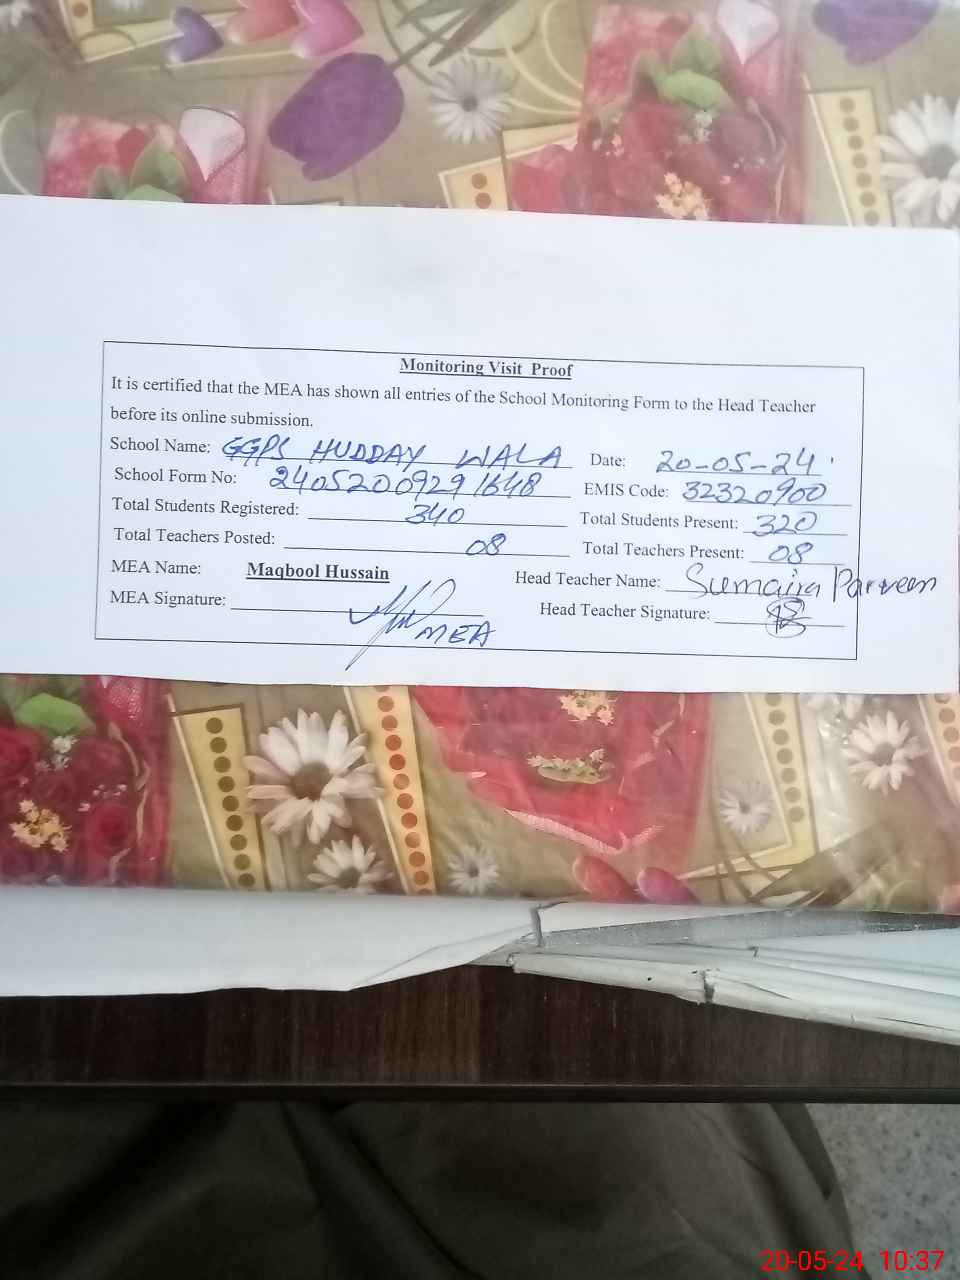 Monitoring Visit Proof
It is certified that the MEA has shown all entries of the School Monitoring Form to the Head Teacher
before its online submission.
School Name: GGPS HUDDAY WALA Date: 20-05-24
School Form No: 24052009291648 EMIS Code: 32320900
Total Students Registered: 340 Total Students Present: 320
Total Teachers Posted: 08 Total Teachers Present: 08
MEA Name: Maqbool Hussain Head Teacher Name: Sumaira Parveen
MEA Signature: MEA Head Teacher Signature:
20-05-24 10:37